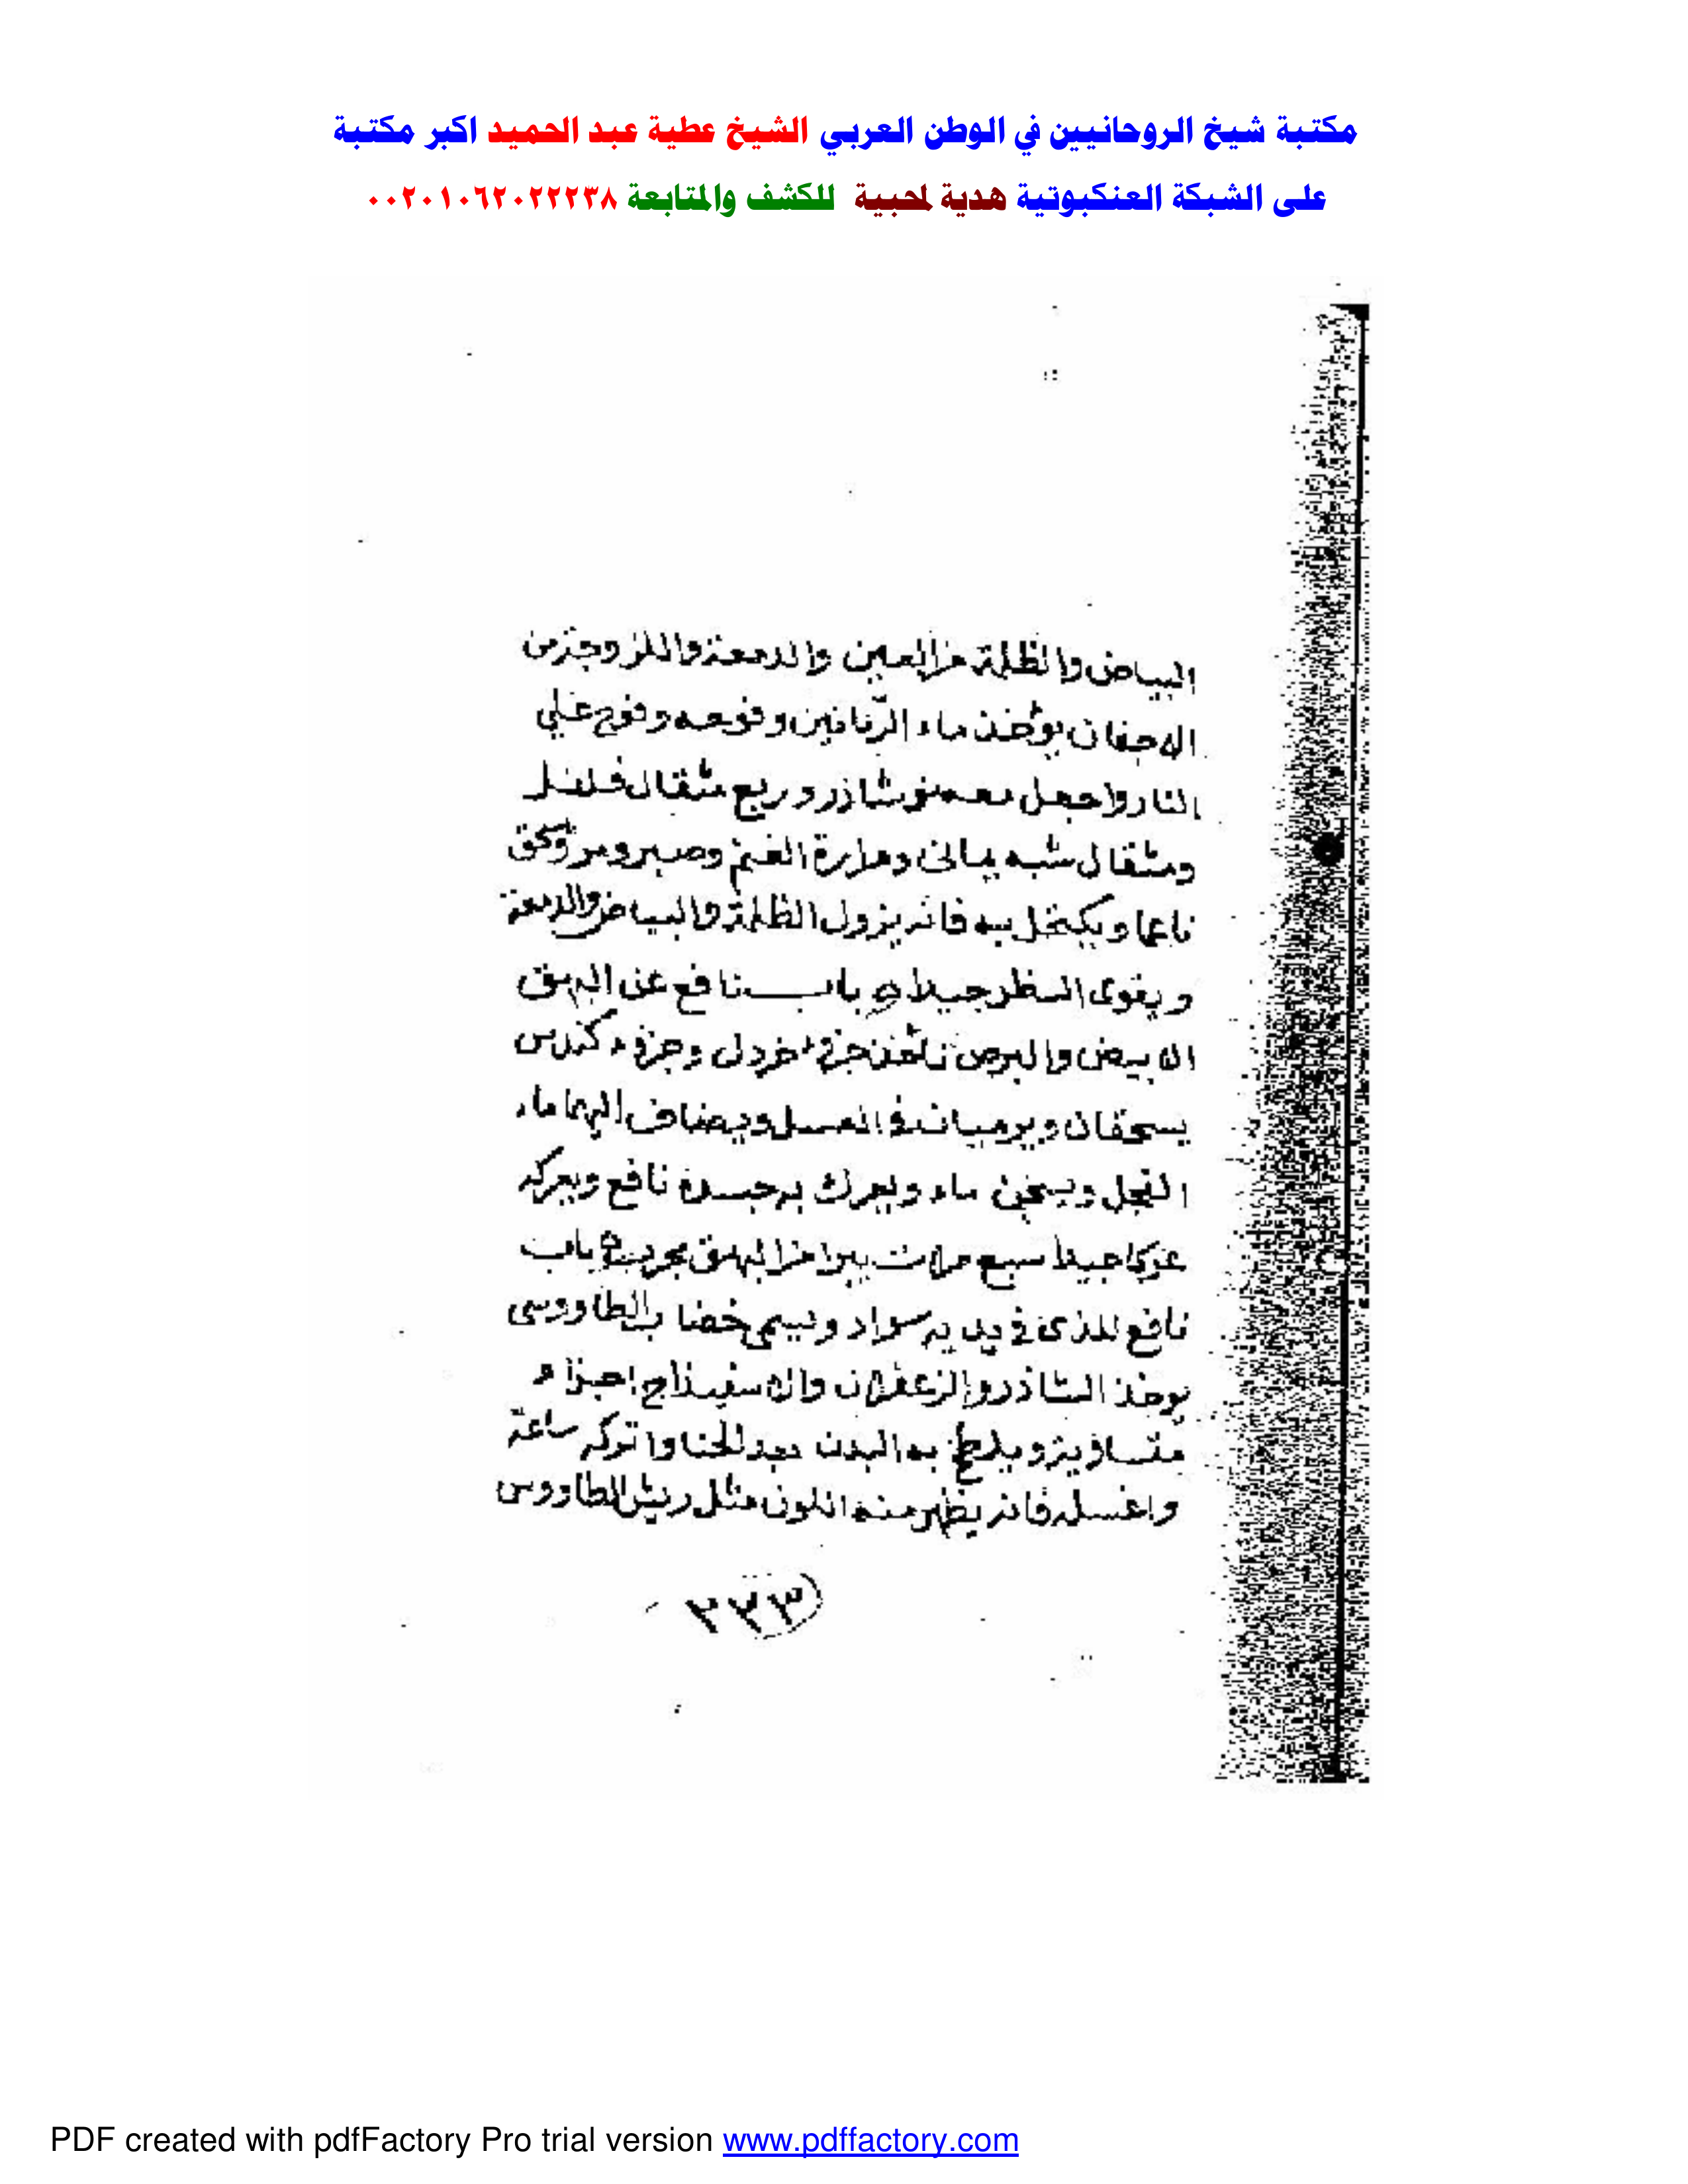 مكتبة شيخ الروحانيين في الوطن العربي الشيخ عطية عبد الحميد اكبر مكتبة
على الشبكة العنكبوتية هدية لمحبية للكشف والمتابعة ٠٠٢٠١٠٦٢٠٢٢٢٣٨
البياض والظلمة من العين والدمعة واللزوجة من
الاجفان يؤخذ ماء الرمانين وفوحه وفوح علي
النار واجعل معه نوشاذر وربع مثقال فلفل
ومثقال شبه يماني ومرارة الغنم وصبر ومر
ناعما ويكتحل به فانه يزول الظلمة والبياض والدمعة
ويقوى النظر جيدا باب نافع عن البهق
الابيض والبرص تأخذ جزء خردل وجزء كندس
يسحقان ويرميان في العسل ويضاف اليهما ماء
الفجل ويسخن ماء ويعرك به جسده نافع ويعركه
عركا جيدا سبع مرات يبرا من البهق مجرب باب
نافع للذى في يديه سواد ويسمى خضاب الطاووسى
يوخذ الشاذر والزعفران والاسفيذاج اجزاء
متساوية ويلطخ به البدن بعد الحنا واتركه ساعة
واغسله فانه يظهر منه اللون مثل ريش الطاووس
٢٣٣
PDF created with pdfFactory Pro trial version www.pdffactory.com